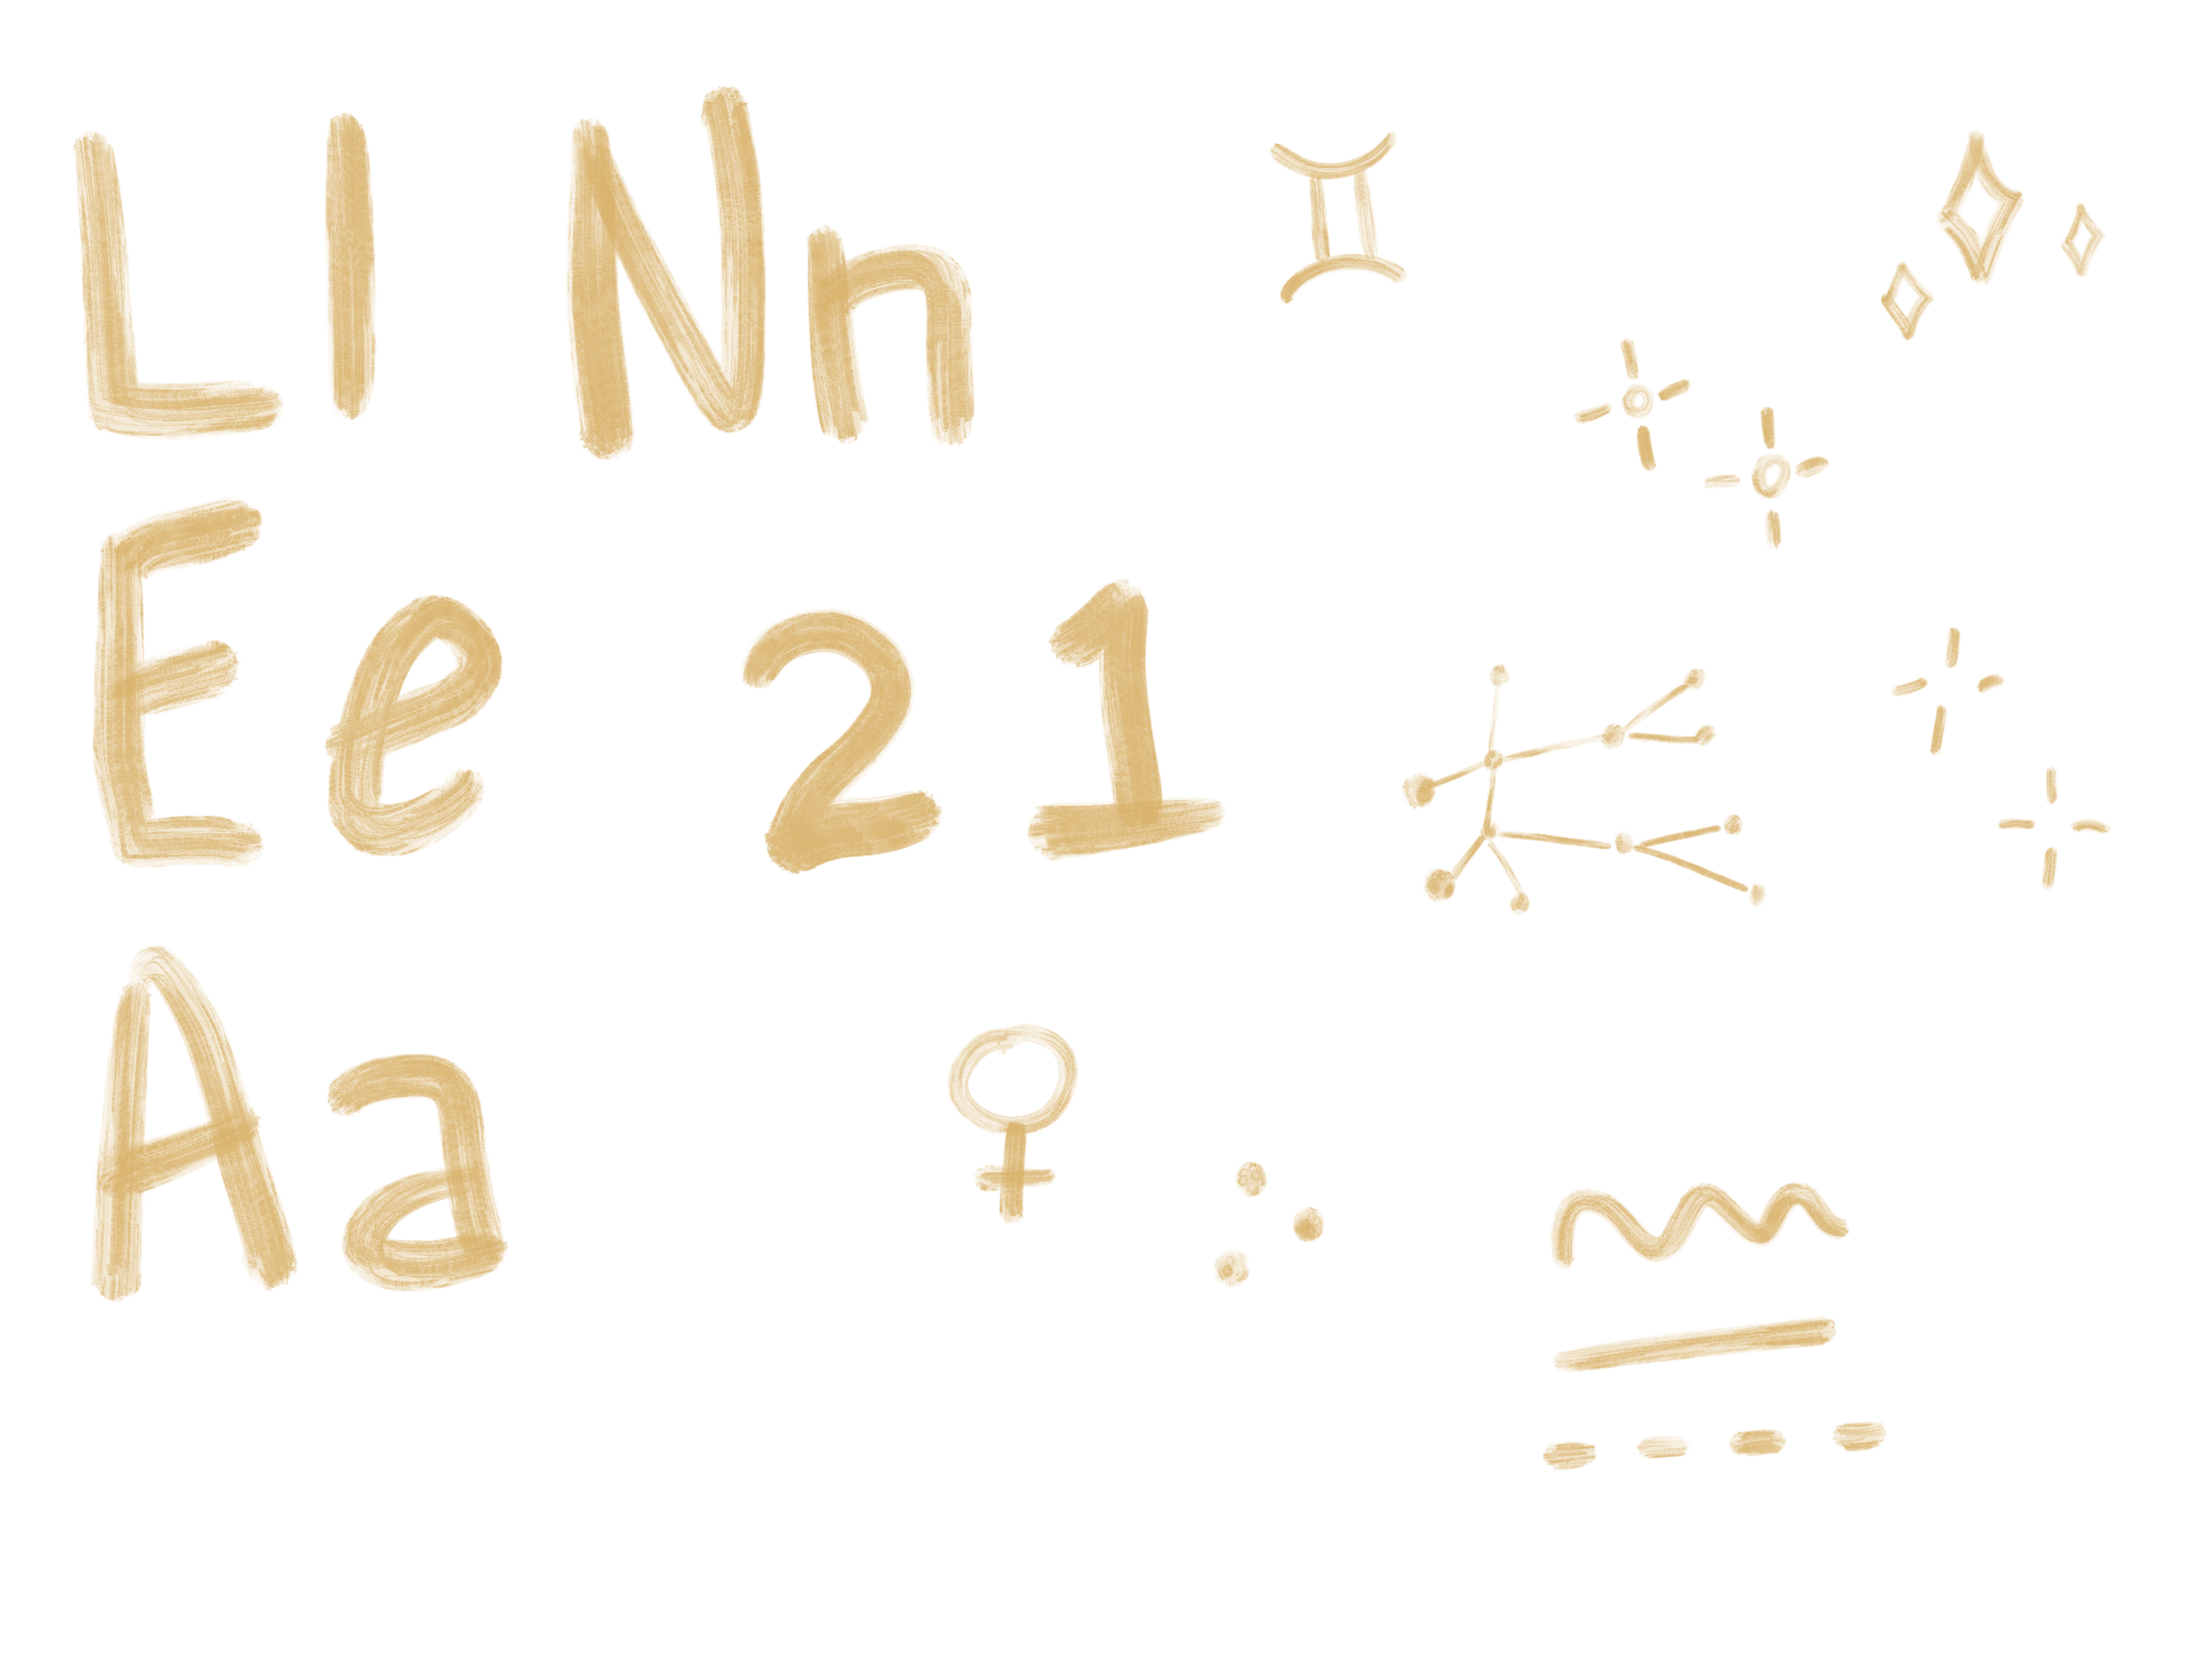 Ll Nn
Ee 21
Aa